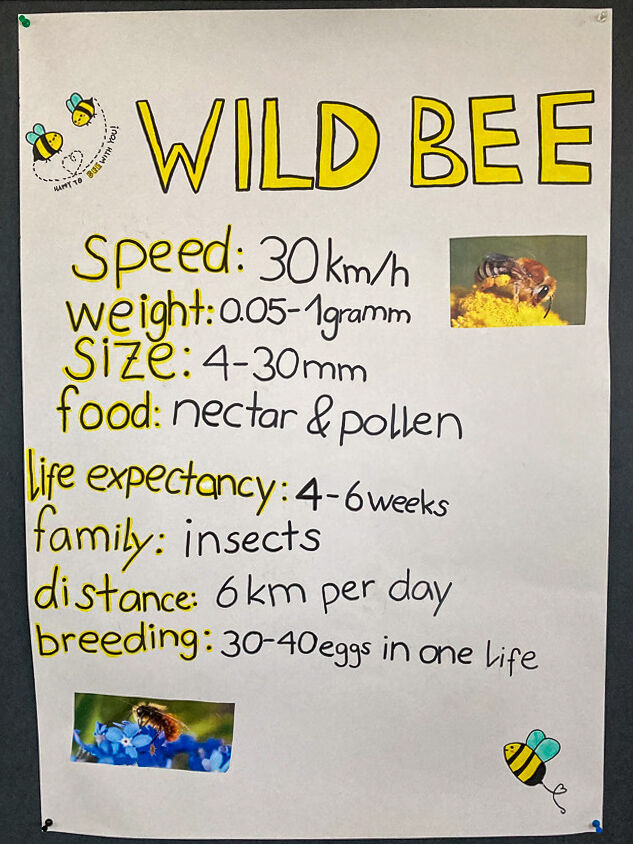 WILD BEE
HAPPY TO BEE WITH YOU!
speed: 30 km/h
weight: 0.05-1gramm
size: 4-30mm
food: nectar & pollen
life expectancy: 4-6 weeks
family: insects
distance: 6 km per day
breeding: 30-40 eggs in one life